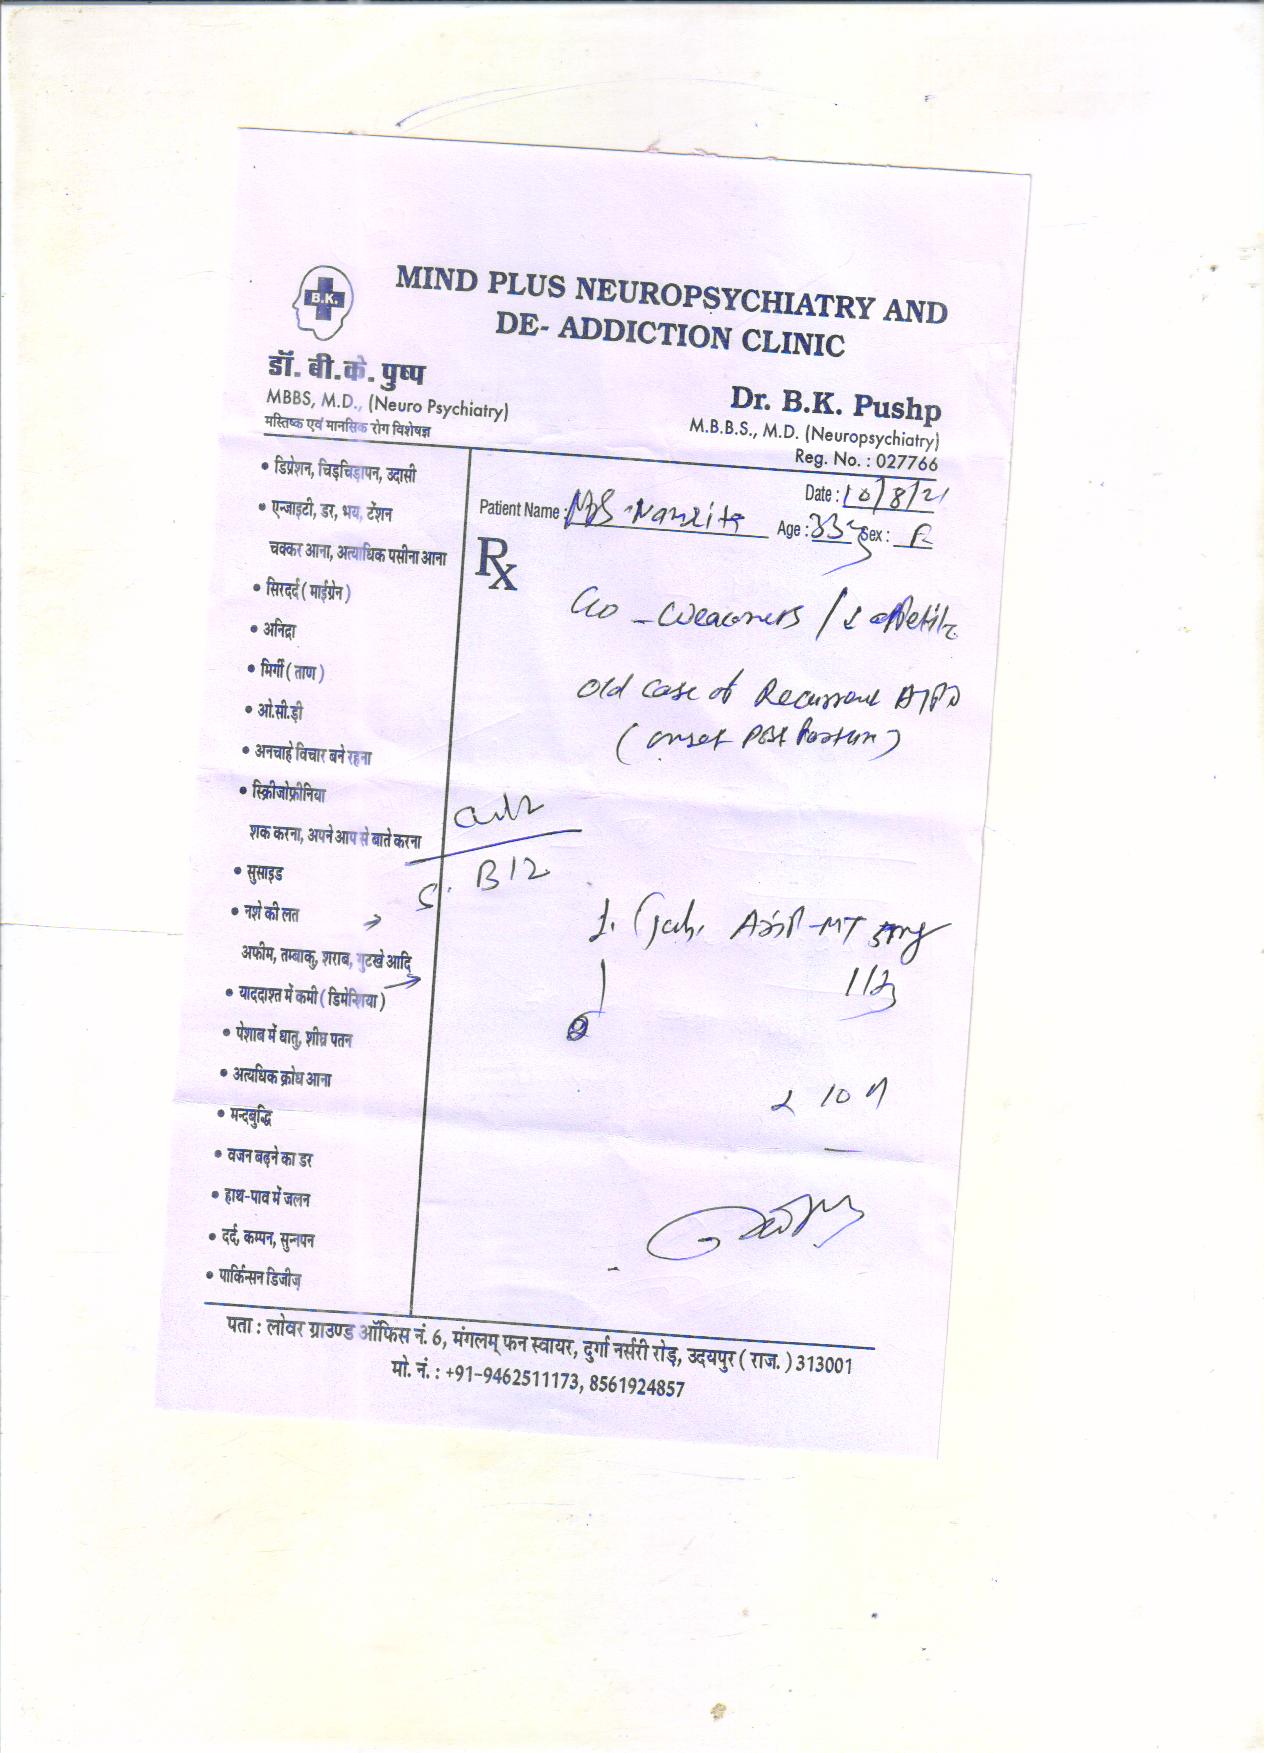 B.K.
MIND PLUS NEUROPSYCHIATRY AND
DE- ADDICTION CLINIC
डॉ. बी.के. पुष्प
MBBS, M.D., (Neuro Psychiatry)
मस्तिष्क एवं मानसिक रोग विशेषज्ञ
Dr. B.K. Pushp
M.B.B.S., M.D. (Neuropsychiatry)
Reg. No. : 027766
• डिप्रेशन, चिड़चिड़ापन, उदासी
• एन्जाइटी, डर, भय, टेंशन
चक्कर आना, अत्याधिक पसीना आना
• सिरदर्द ( माईग्रेन )
• अनिद्रा
• मिर्गी ( ताण )
• ओ.सी.ड़ी
• अनचाहे विचार बने रहना
• स्क्रीजोफ्रीनिया
शक करना, अपने आप से बाते करना
• सुसाइड
• नशे की लत
अफीम, तम्बाकु, शराब, गुटखे आदि
• याददाश्त में कमी ( डिमेन्शिया )
• पेशाब में धातु, शीघ्र पतन
• अत्यधिक क्रोध आना
• मन्दबुद्धि
• वजन बढ़ने का डर
• हाथ-पाव में जलन
• दर्द, कम्पन, सुन्नपन
• पार्किन्सन डिजीज़
Date : 10/8/21
Patient Name : Mrs Age : 33 Sex : F
Rx
C/o - weakness / appetite
old case of Recurrent
( onset Post Partum )
S. B12
1. Tab. MT 5mg
10
पता : लोवर ग्राउण्ड ऑफिस नं. 6, मंगलम् फन स्वायर, दुर्गा नर्सरी रोड़, उदयपुर ( राज. ) 313001
मो. नं. : +91-9462511173, 8561924857